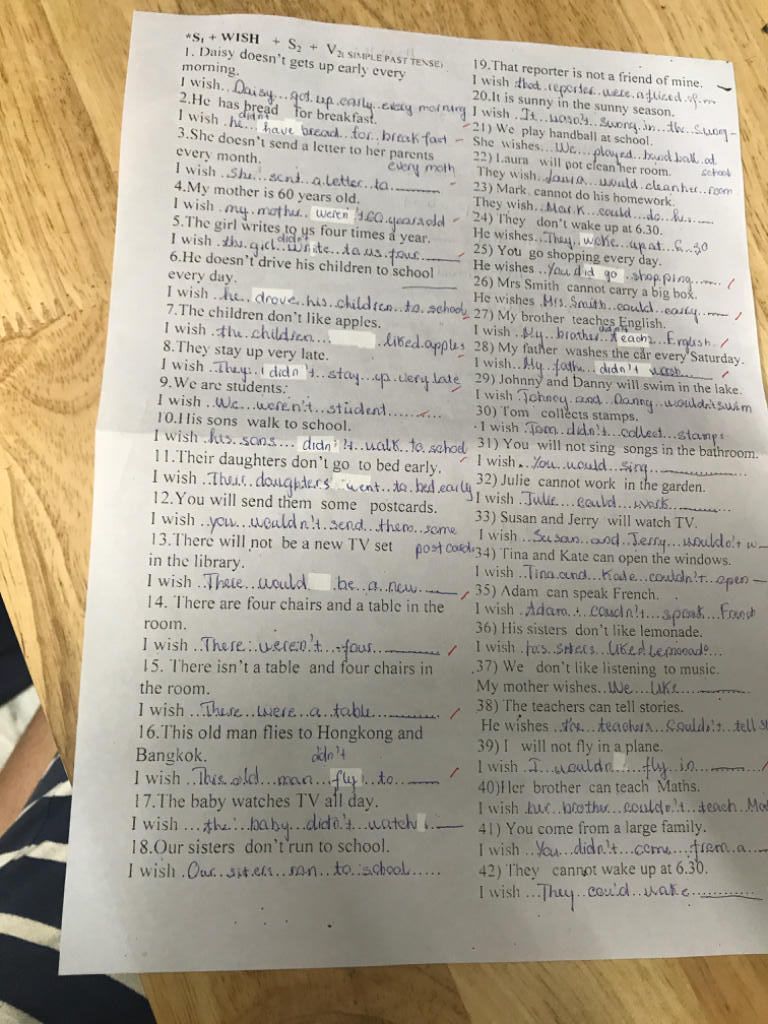 *S1 + WISH + S2 + V2( SIMPLE PAST TENSE)
1. Daisy doesn't gets up early every
morning.
I wish...Daisy...got..up..early..every morning
2.He has bread for breakfast.
didn't
I wish ..he...have bread..for..breakfast
3.She doesn't send a letter to her parents
every month.
every moth
I wish ..she...sent...a.letter..to
4.My mother is 60 years old.
I wish ..my..mother..weren't 60.years old
5.The girl writes to us four times a year.
didn't
I wish .the.girl..write..to.us.four
6.He doesn't drive his children to school
every day.
I wish ...he...drove..his..children..to..school
7.The children don't like apples.
I wish ..the..children...liked.apples
8.They stay up very late.
I wish ...They..didn't..stay...up.very late
9.We are students.
I wish ...We...weren't...student
10.His sons walk to school.
I wish .his..sons...didn't..walk..to..school
11.Their daughters don't go to bed early.
I wish ..Their..daughters..went..to.bed.early
12.You will send them some postcards.
I wish ..you...wouldn't.send..them..some
postcards
13.There will not be a new TV set
in the library.
I wish ..There...would..be..a..new
14. There are four chairs and a table in the
room.
I wish ..There..weren't..four
15. There isn't a table and four chairs in
the room.
I wish ..There..were..a..table
16.This old man flies to Hongkong and
Bangkok.
didn't
I wish ..This.old...man...fly..to
17.The baby watches TV all day.
I wish ....the..baby..didn't..watch
18.Our sisters don't run to school.
I wish .Our..sisters...ran...to.school
19.That reporter is not a friend of mine.
I wish that.reporter..were.a
20.It is sunny in the sunny season.
I wish ..It..wasn't...in...the
21) We play handball at school.
She wishes...We...played..hand ball..at
school
22) Laura will not clean her room.
They wish..Laura..would..clean her..room
23) Mark cannot do his homework.
They wish...Mark..could...do..his
24) They don't wake up at 6.30.
He wishes...They..woke...up at...6..30
25) You go shopping every day.
He wishes ..You did go .shopping
26) Mrs Smith cannot carry a big box.
He wishes .Mrs.Smith..could..carry
27) My brother teaches English.
didn't
I wish ..My...brother..teach..English
28) My father washes the car every Saturday.
I wish...My..didn't...wash
29) Johnny and Danny will swim in the lake.
I wish .Johnny..and..Danny..wouldn't swim
30) Tom collects stamps.
I wish ..Tom..didn't...collect...stamps
31) You will not sing songs in the bathroom.
I wish...You..would...sing
32) Julie cannot work in the garden.
I wish ...Julie....could...work
33) Susan and Jerry will watch TV.
I wish ...Susan..and..Jerry..wouldn't w
34) Tina and Kate can open the windows.
I wish ...Tina.and...Kate..couldn't..open
35) Adam can speak French.
I wish .Adam..coudn't...speak
36) His sisters don't like lemonade.
I wish .his..sisters...liked
37) We don't like listening to music.
My mother wishes..We...like
38) The teachers can tell stories.
He wishes ..the..teachers...couldn't..tell st
39) I will not fly in a plane.
I wish ..I...fly..in
40)Her brother can teach Maths.
I wish her..brother...couldn't..teach..Mat
41) You come from a large family.
I wish ...You..didn't...come...from..a
42) They cannot wake up at 6.30.
I wish ...They...could..wake